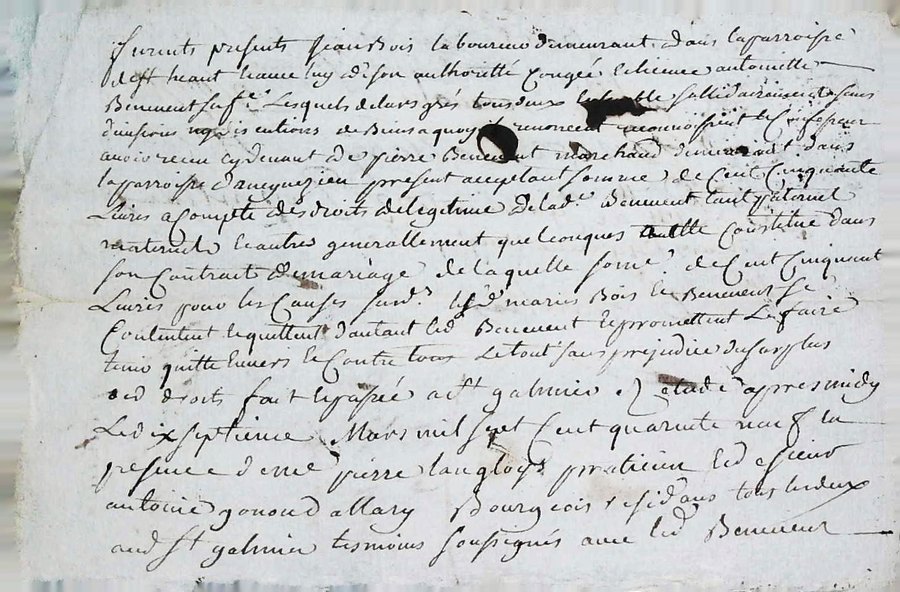 furents presents Jean Bois laboureur demeurant dans la parroisse
de st heant heaume luy de son authoritté congée licience antoinette
Benevent sa fe. Lesquels de leurs grés tous deux sollidairement sans
division ny discutions de biens a quoy renoncent reconnoissent et confessent
avoir receu cy devant de pierre Benevent marchand demeurant dans
la parroisse d'aveyzieu present acceptant somme de Cent Cinquante
Livres a Compte des droits de legitime de lad. Benevent tant paternel
maternel et autres generallement quelconques Constitué dans
son Contract de mariage de laquelle some de Cent Cinquant
Livres pour les Causes susd. les d. mariés Bois et Benevent se
Contentent et quittent d'autant led Benevent et promettent Le faire
tenir quitte Envers et Contre tous Le tout sans prejudice du surplus
desd droits fait et passée a st galmier Etude apres midy
Le dix septieme Mars mil sept Cent quarente neuf En
presence de me pierre langloys praticien et de sieur
antoine gonon d'allary Bourgeois residans tous les deux
aud st galmier tesmoins soussignés avec led Benevent